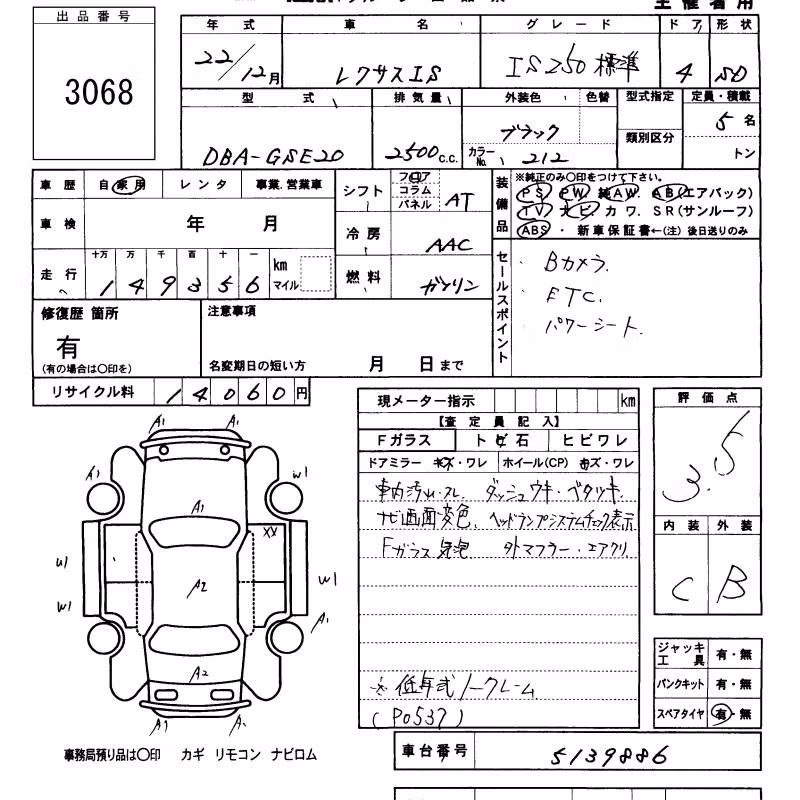 主催者用
出品番号
3068
年式 車名 グレード ドア 形状
22/12月 レクサスIS IS250 標準 4 SD
型式 排気量 外装色 色替 型式指定 定員・積載
DBA-GSE20 2500c.c. ブラック カラーNo. 212 類別区分 5名 トン
車歴 自家用 レンタ 事業.営業車
車検 年 月
走行 十万 万 千 百 十 一 km マイル
149356
シフト フロア コラム パネル AT
冷房 AAC
燃料 ガソリン
装備品
※純正のみ〇印をつけて下さい。
PS PW 純AW. AB(エアバック)
TV ナビ カワ. SR(サンルーフ)
ABS ・ 新車保証書←(注) 後日送りのみ
セールスポイント
・ Bカメラ.
・ ETC.
・ パワーシート.
修復歴 箇所
有
(有の場合は〇印を)
注意事項
名変期日の短い方 月 日まで
リサイクル料 14060円
現メーター指示 km
【査定員記入】
Fガラス トビ石 ヒビワレ
ドアミラー キズ・ワレ ホイール(CP) キズ・ワレ
車内汚れ・スレ. ダッシュウキ・ベタツキ.
ナビ画面変色. ヘッドランプシステムチェック表示
Fガラス気泡 外マフラー・エアクリ
※ 低年式ノークレーム
(P0537)
評価点
3.5
内装 外装
C B
ジャッキ工具 有・無
パンクキット 有・無
スペアタイヤ 有・無
A1 A1
A1 A1 W1
XX
U1 A2 W1
W1 A1
A2
A1 A1
事務局預り品は〇印 カギ リモコン ナビロム
車台番号 5139886